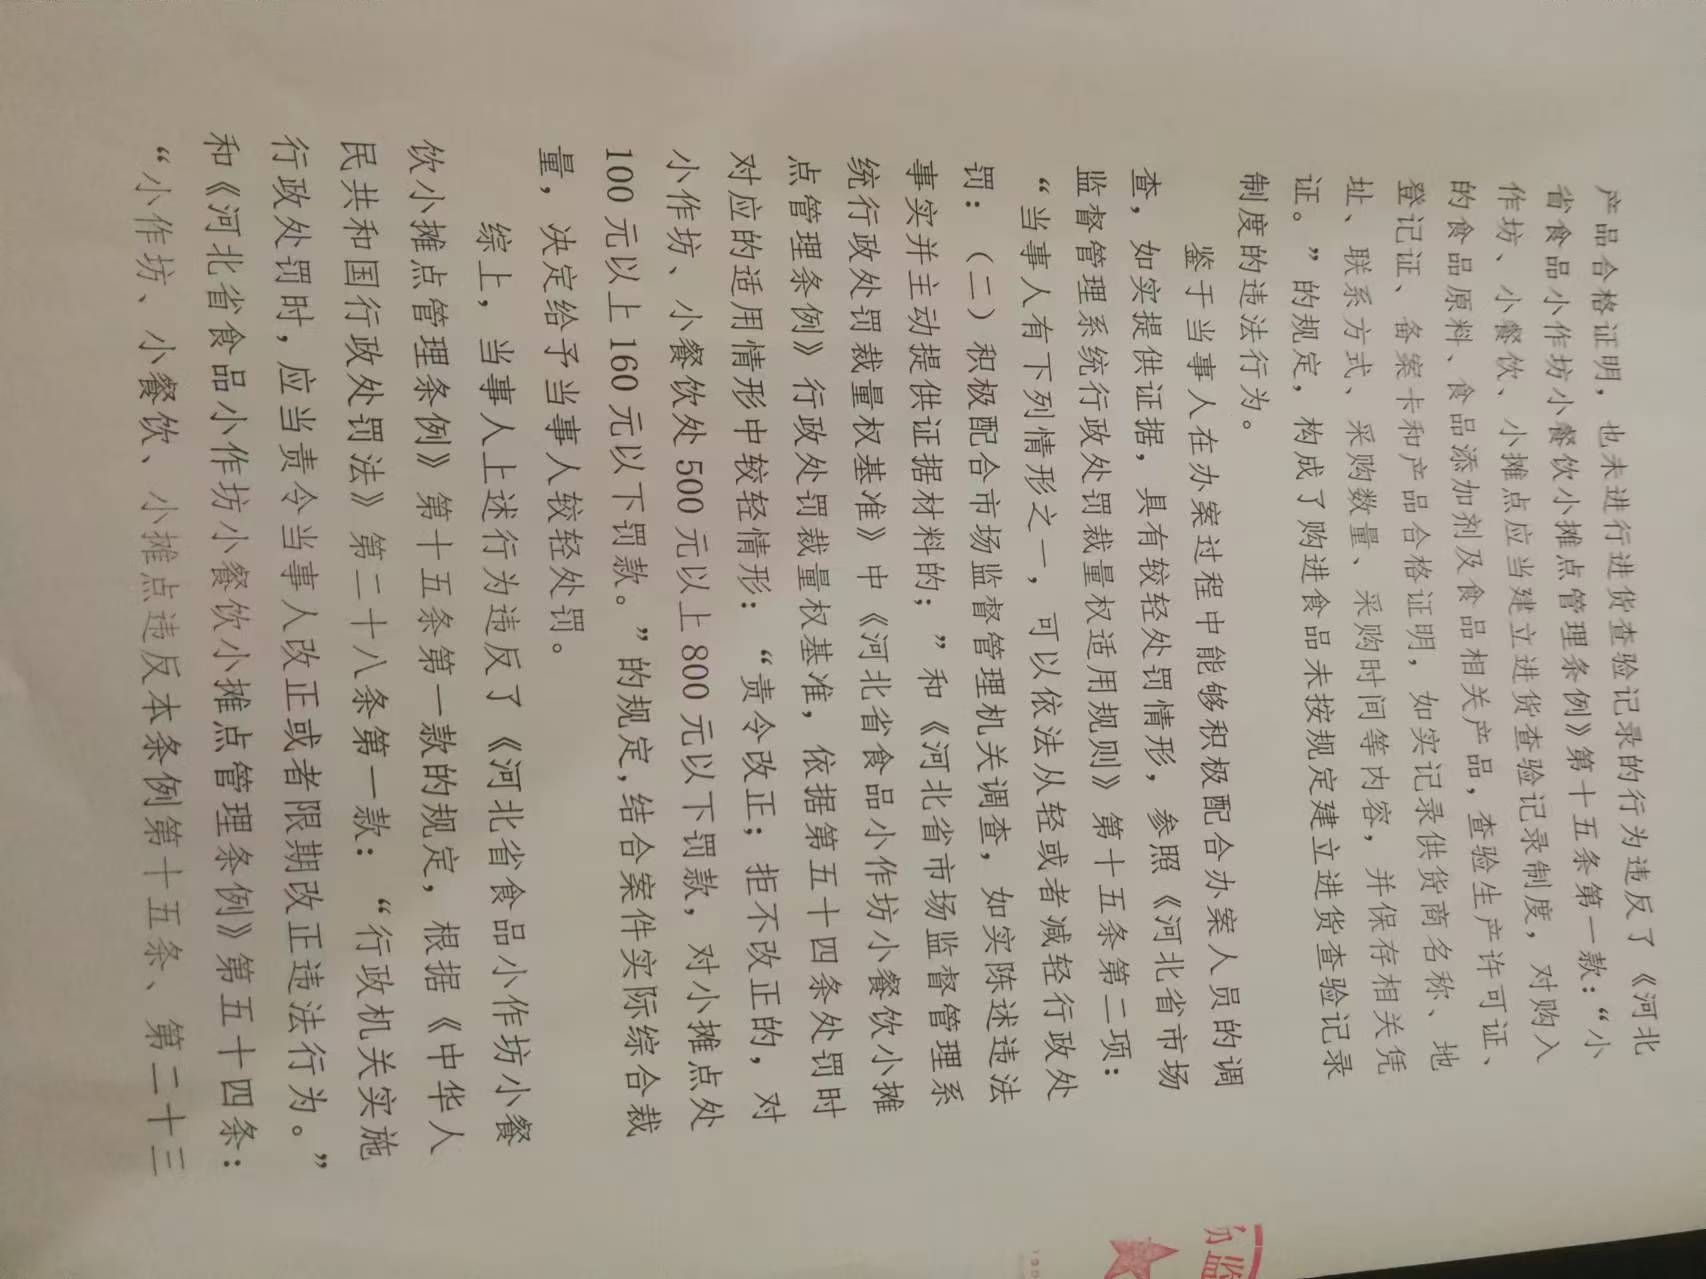 产品合格证明，也未进行进货查验记录的行为违反了《河北
省食品小作坊小餐饮小摊点管理条例》第十五条第一款：“小
作坊、小餐饮、小摊点应当建立进货查验记录制度，对购入
的食品原料、食品添加剂及食品相关产品，查验生产许可证、
登记证、备案卡和产品合格证明，如实记录供货商名称、地
址、联系方式、采购数量、采购时间等内容，并保存相关凭
证。”的规定，构成了购进食品未按规定建立进货查验记录
制度的违法行为。
鉴于当事人在办案过程中能够积极配合办案人员的调
查，如实提供证据，具有较轻处罚情形，参照《河北省市场
监督管理系统行政处罚裁量权适用规则》第十五条第二项：
“当事人有下列情形之一，可以依法从轻或者减轻行政处
罚：（二）积极配合市场监督管理机关调查，如实陈述违法
事实并主动提供证据材料的；”和《河北省市场监督管理系
统行政处罚裁量权基准》中《河北省食品小作坊小餐饮小摊
点管理条例》行政处罚裁量权基准，依据第五十四条处罚时
对应的适用情形中较轻情形：“责令改正；拒不改正的，对
小作坊、小餐饮处 500 元以上 800 元以下罚款，对小摊点处
100 元以上 160 元以下罚款。”的规定，结合案件实际综合裁
量，决定给予当事人较轻处罚。
综上，当事人上述行为违反了《河北省食品小作坊小餐
饮小摊点管理条例》第十五条第一款的规定，根据《中华人
民共和国行政处罚法》第二十八条第一款：“行政机关实施
行政处罚时，应当责令当事人改正或者限期改正违法行为。”
和《河北省食品小作坊小餐饮小摊点管理条例》第五十四条：
“小作坊、小餐饮、小摊点违反本条例第十五条、第二十三
监